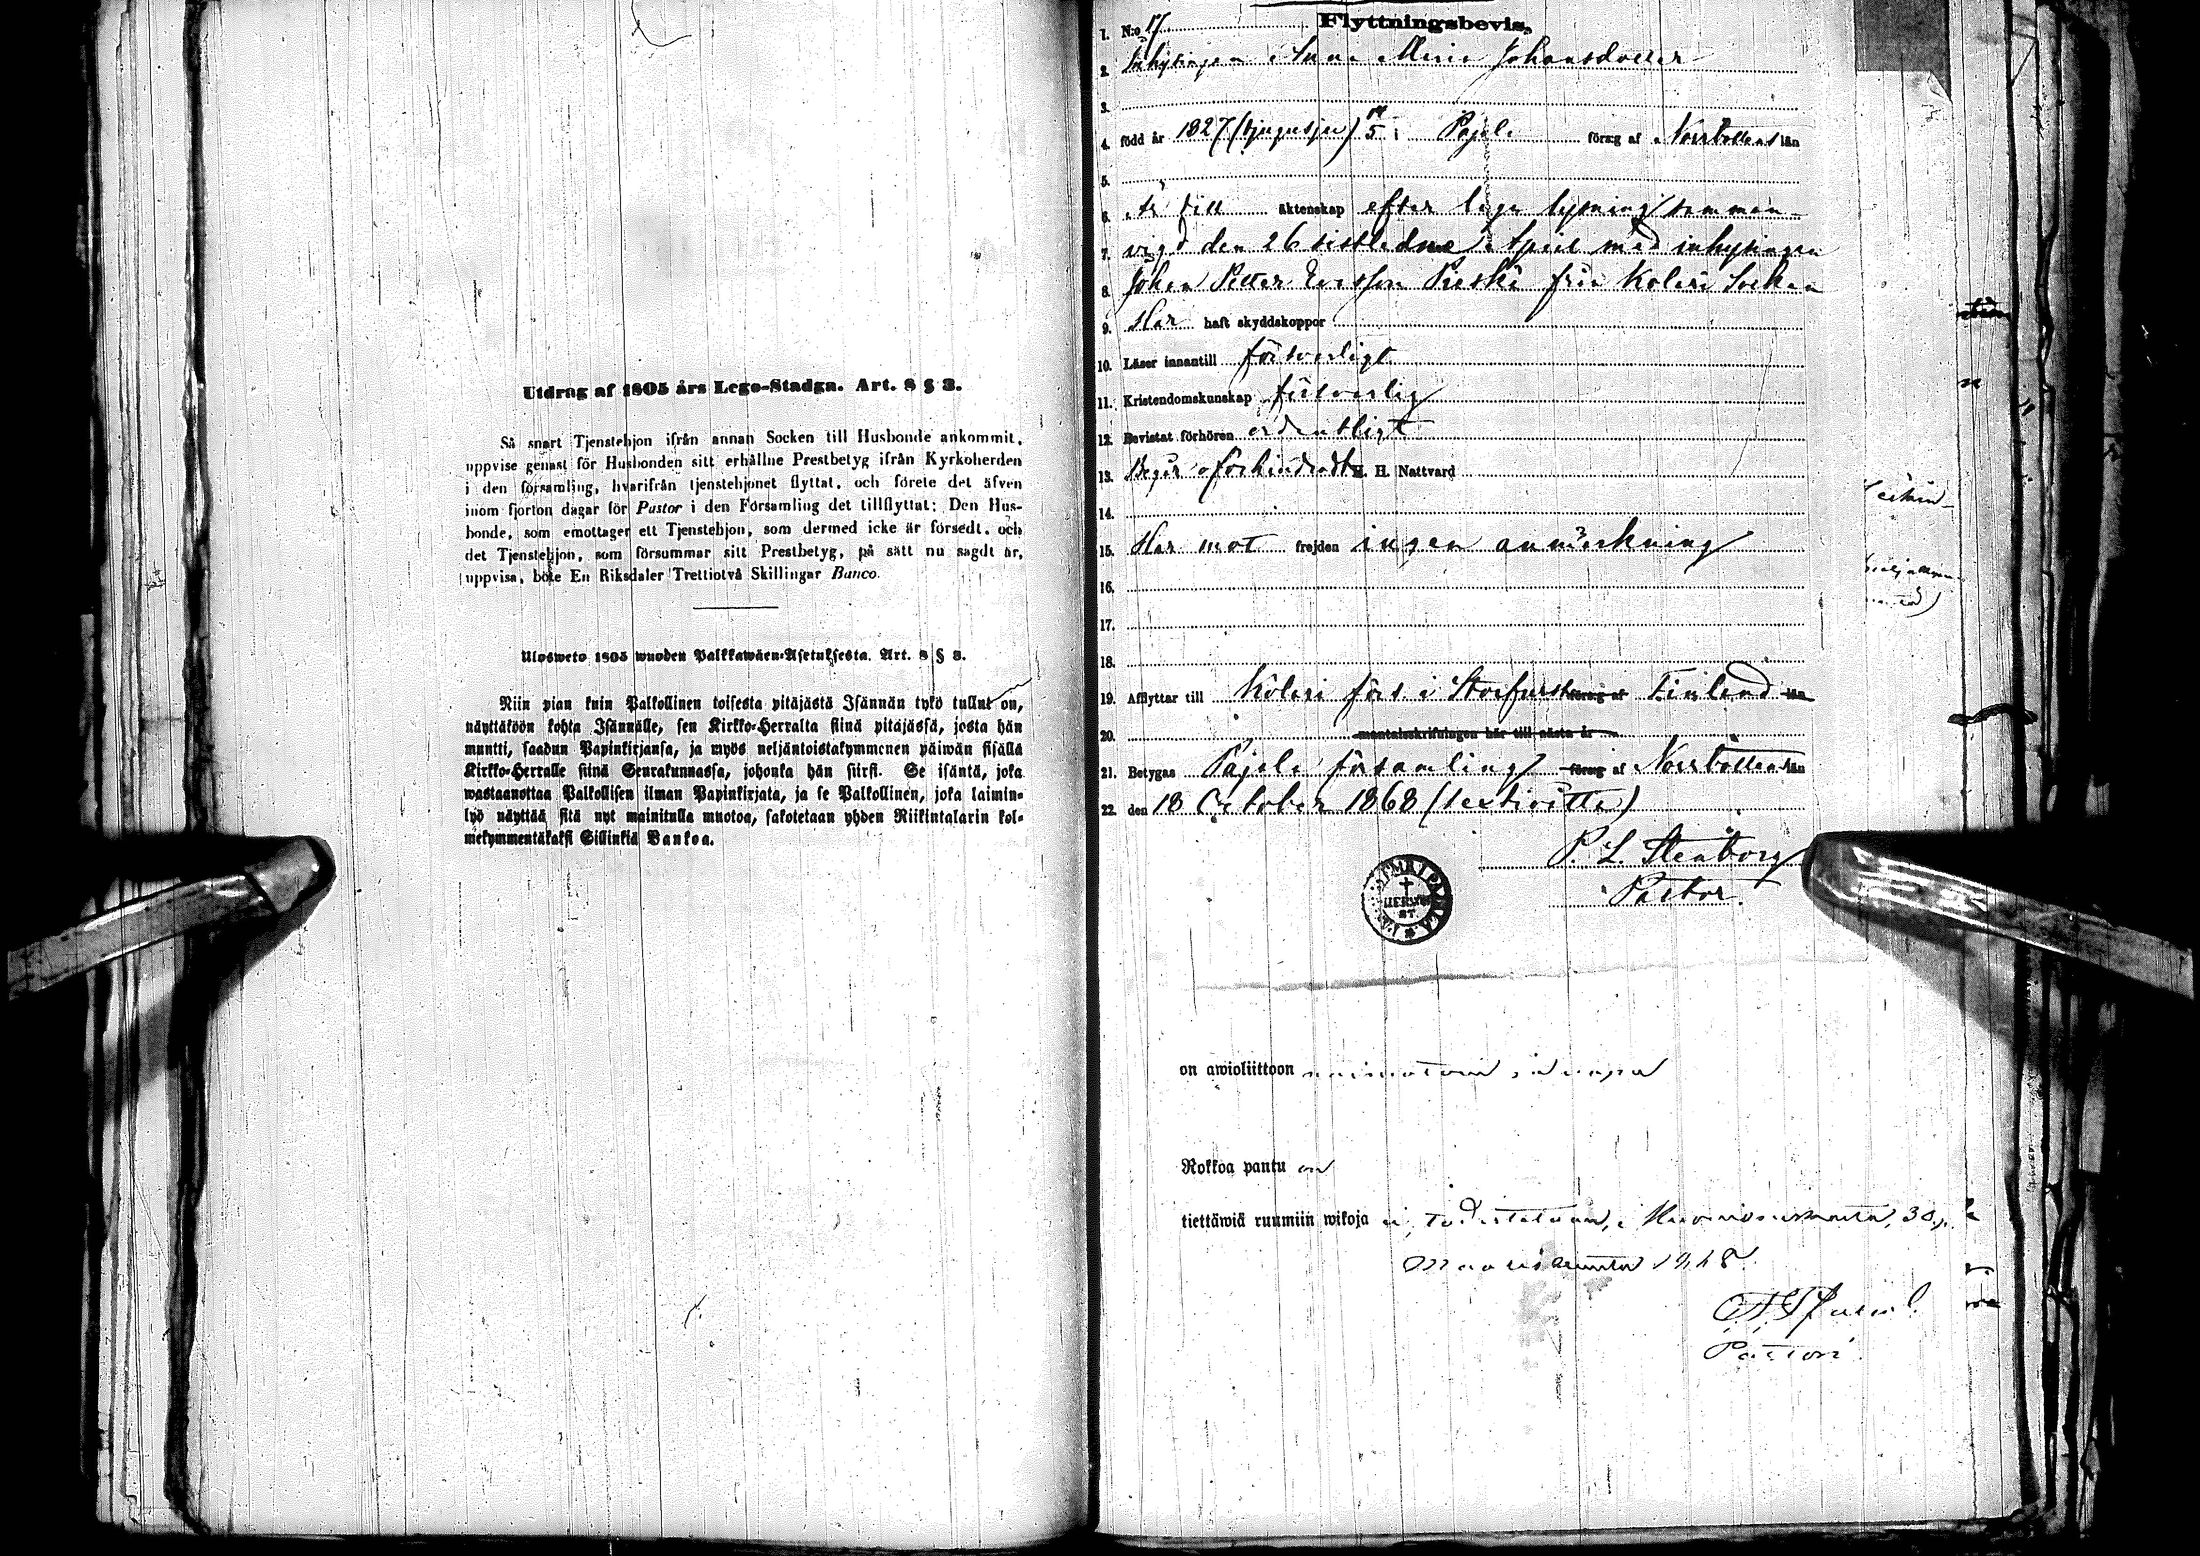 Utdrag af 1805 års Lego-Stadga. Art. 8 § 3.
Så snart Tjenstehjon ifrån annan Socken till Husbonde ankommit,
uppvise genast för Husbonden sitt erhållne Prestbetyg ifrån Kyrkoherden
i den församling, hvarifrån tjenstehjonet flyttat, och förete det äfven
inom fjorton dagar för Pastor i den Församling det tillflyttat; Den Hus-
bonde, som emottager ett Tjenstehjon, som dermed icke är försedt, och
det Tjenstehjon, som försummar sitt Prestbetyg, på sätt nu sagdt är,
uppvisa, böte En Riksdaler Trettiotvå Skillingar Banco.
Ulosweto 1805 wuoden Palkkawäen-Asetuksesta. Art. 8 § 3.
Niin pian kuin Palkollinen toisesta pitäjästä Isännän tykö tullut on,
näyttäköön kohta Isännälle, sen Kirkko-Herralta siinä pitäjässä, josta hän
muutti, saadun Papinkirjansa, ja myös neljäntoistakymmenen päiwän sisällä
Kirkko-Herralle siinä Seurakunnassa, johonka hän siirsi. Se isäntä, joka
wastaanottaa Palkollisen ilman Papinkirjata, ja se Palkollinen, joka laimin-
lyö näyttää sitä nyt mainitulla muotoa, sakotetaan yhden Riikintalarin kol-
mekymmentäkaksi Sillinkiä Bankoa.
Flyttningsbevis,
1. N:o 17
2. Inhysingen Anna Maria Johansdotter
3.
4. född år 1827 (tjugusju) 17/5 i Pajala förs:g af Norrbottens län
5.
6. är till äktenskap efter laga lysning samman-
7. vigd den 26 sistledne April med inhysingen
8. Johan Petter Ersson Kolari Socken
9. Har haft skyddskoppor
10. Läser innantill försvarligt
11. Kristendomskunskap försvarlig
12. Bevistat förhören ordentligt
13. Begår oförhindradt H. H. Nattvard
14.
15. Har mot frejden ingen anmärkning
16.
17.
18.
19. Afflyttar till Kolari förs i Storfurst förs:g af Finland län
20. mantalsskrifningen här till nästa år
21. Betygas Pajala församling förs:g af Norrbottens län
22. den 18 October 1868 (sextioåtta)
P. L. Stenborg
Pastor.
on awioliittoon
Rokkoa pantu on
tiettäwiä ruumiin wikoja ei, todistetaan, 30 p.
1868
Pastori